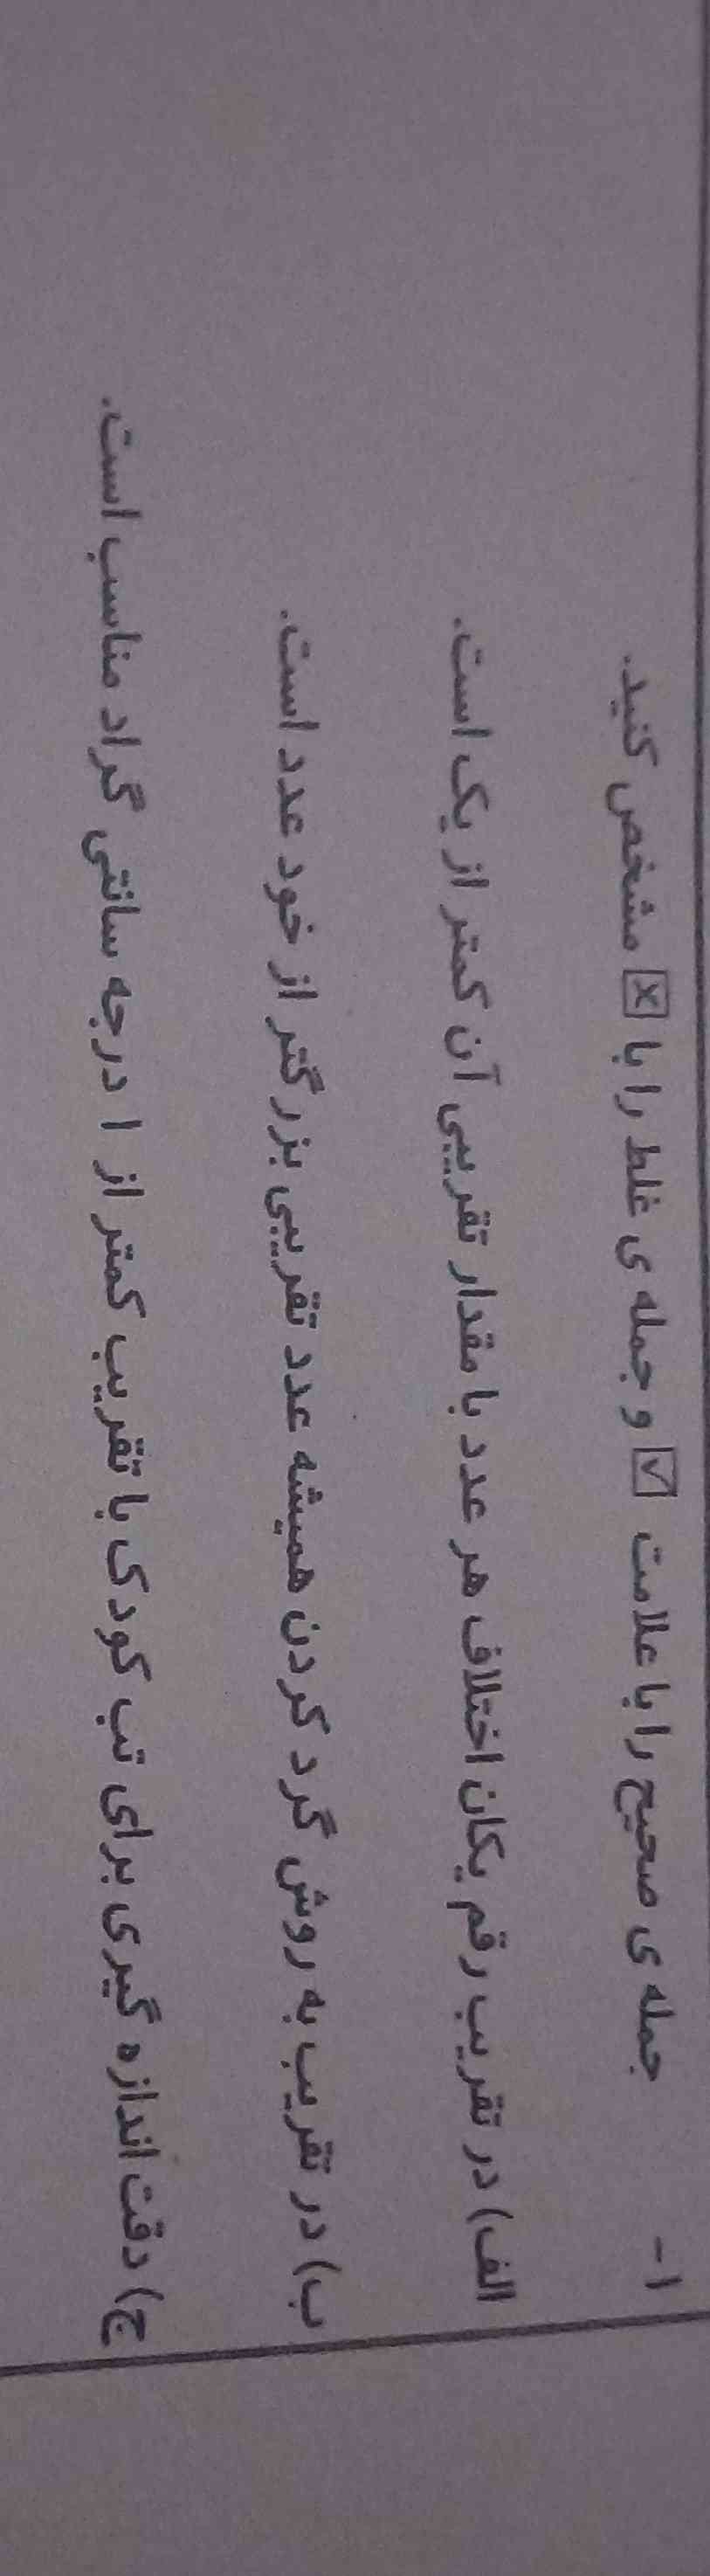 ۱- جمله ی صحیح را با علامت ☑ و جمله ی غلط را با ☒ مشخص کنید.
الف) در تقریب رقم یکان اختلاف هر عدد با مقدار تقریبی آن کمتر از یک است.
ب) در تقریب به روش گرد کردن همیشه عدد تقریبی بزرگتر از خود عدد است.
ج) دقت اندازه گیری برای تب کودک با تقریب کمتر از ۱ درجه سانتی گراد مناسب است.